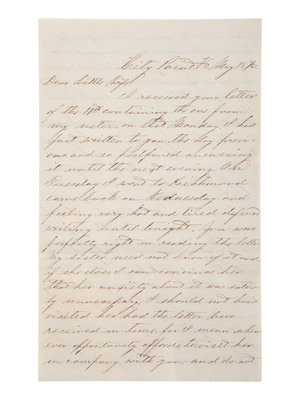 City Point Va May 18/65
Dear Little Wife
I received your letter
of the 11th containing the one from
my sister, on that Monday. I had
just written to you the day previ-
ous and so postponed answering
it until the next evening. On
Tuesday I went to Richmond
came back on Wednesday and
feeling very hot and tired deferred
writing until tonight. you were
perfectly right in reading the letter
my sister need not know of it and
if she does I can convince her
that her anxiety about it was entire-
ly unnecessary. I should not have
visited her had the letter been
received in time for I mean when
ever opportunity offers to visit her
in company with you and do not